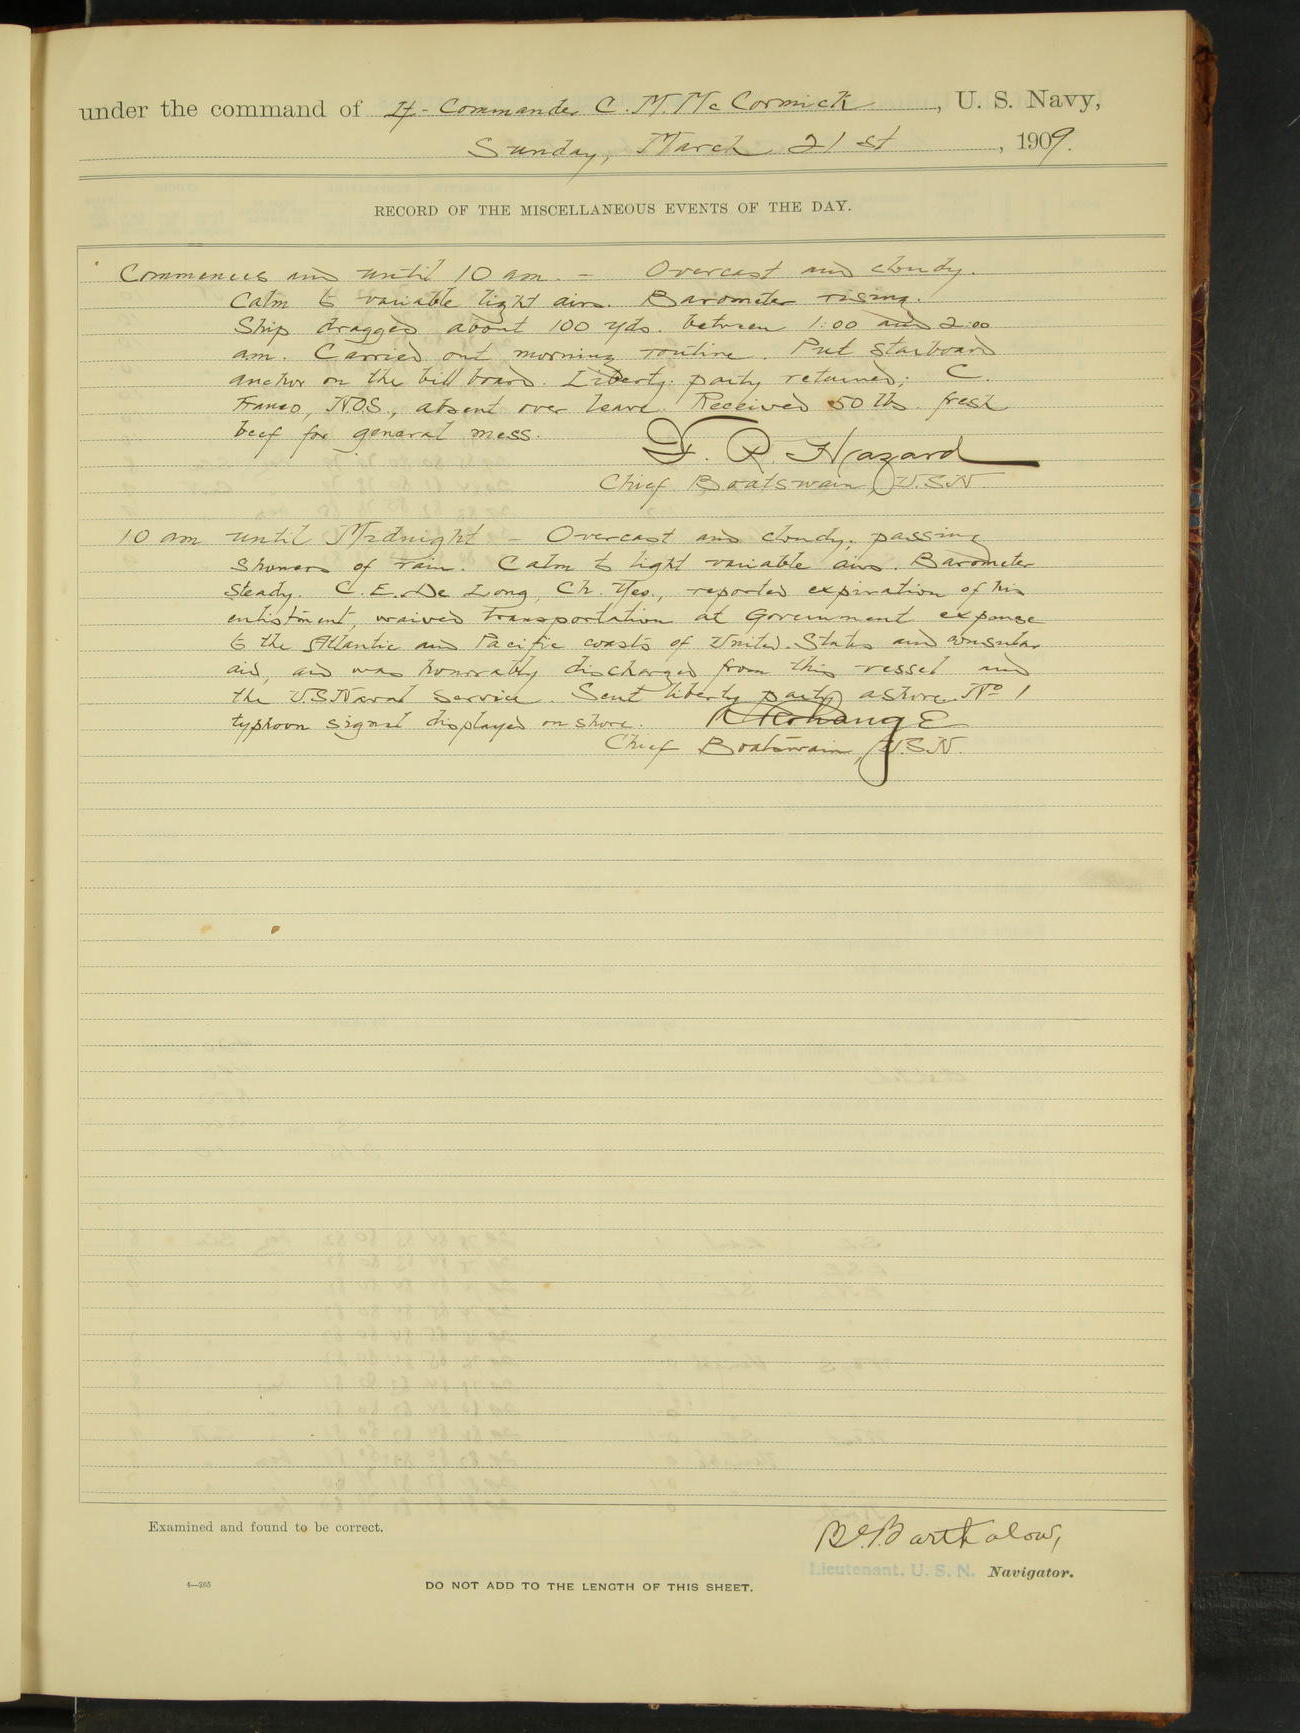 under the command of Lt-Commander C. M. McCormick, U. S. Navy,
Sunday, March 21st, 1909.
RECORD OF THE MISCELLANEOUS EVENTS OF THE DAY.
Commences and until 10 am. - Overcast and cloudy.
Calm to variable light airs. Barometer rising.
Ship dragged about 100 yds. between 1:00 and 2:00
am. Carried out morning routine. Put starboard
anchor on the bill board. Liberty party returned; C.
Franco, N.O.S., absent over leave. Received 50 lbs. fresh
beef for general mess.
F. R. Hazard
Chief Boatswain, U.S.N.
10 am until Midnight - Overcast and cloudy, passing
showers of rain. Calm to light variable airs. Barometer
steady. C. E. De Long, Ch. Yeo., reported expiration of his
enlistment, waived transportation at Government expense
to the Atlantic and Pacific coasts of United States and consular
aid, and was honorably discharged from this vessel and
the U.S. Naval Service. Sent liberty party ashore. No 1
typhoon signal displayed on shore.
Chief Boatswain, U.S.N.
Examined and found to be correct.
Lieutenant. U. S. N. Navigator.
4—265
DO NOT ADD TO THE LENGTH OF THIS SHEET.